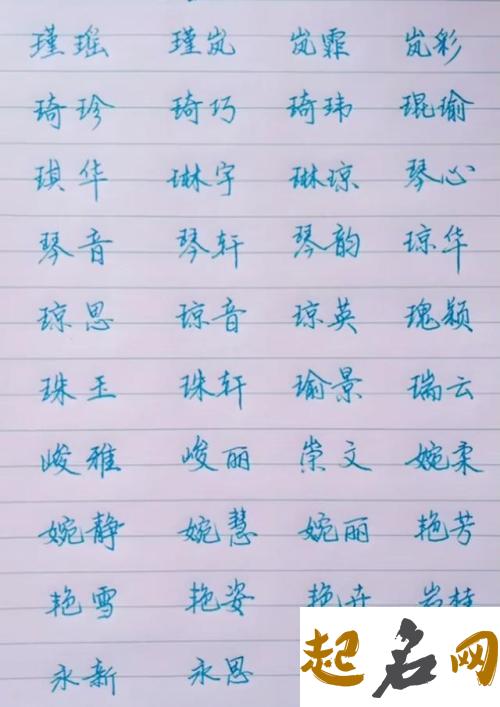 瑾瑶 瑾岚 岚霏 岚彩
琦珍 琦巧 琦玮 琨瑜
琪华 琳宇 琳琼 琴心
琴音 琴轩 琴韵 琼华
琼思 琼音 琼英 瑰颖
珠玉 珠轩 瑜景 瑞云
峻雅 峻丽 崇文 婉柔
婉静 婉慧 婉丽 艳芳
艳雪 艳姿 艳卉 岩桂
永新 永思
起名网